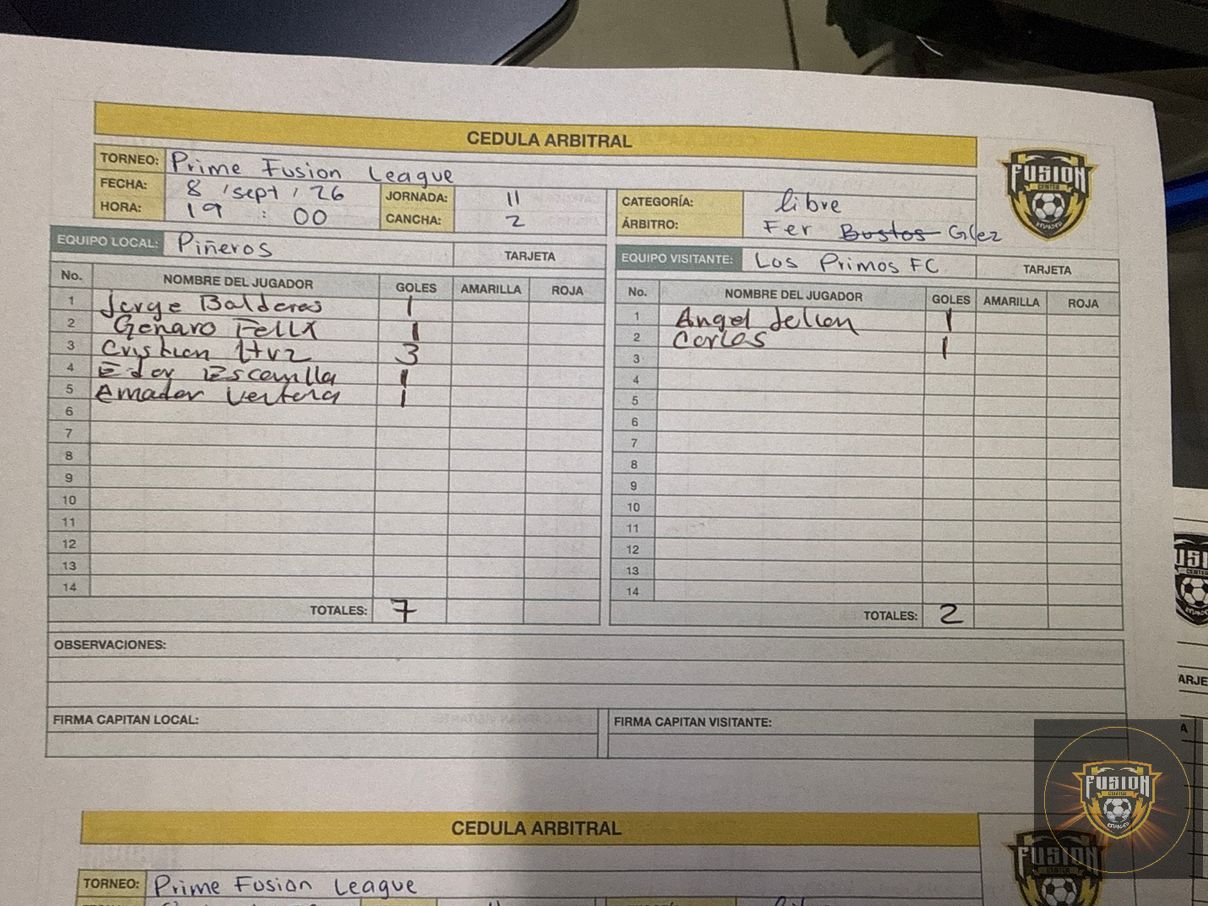 CEDULA ARBITRAL
TORNEO: Prime Fusion League
FECHA: 8 / sept / 26
JORNADA: 11
HORA: 19 : 00
CANCHA: 2
CATEGORÍA: libre
ÁRBITRO: Fer Bustos Glez
FUSION
CENTER
EQUIPO LOCAL: Piñeros
TARJETA
No. NOMBRE DEL JUGADOR GOLES AMARILLA ROJA
1 Jorge Balderas 1
2 Genaro Felix 1
3 Cristian Htvz 3
4 Eder Escamilla 1
5 Amador 1
6
7
8
9
10
11
12
13
14
TOTALES: 7
EQUIPO VISITANTE: Los Primos FC
TARJETA
No. NOMBRE DEL JUGADOR GOLES AMARILLA ROJA
1 Angel 1
2 Carlos 1
3
4
5
6
7
8
9
10
11
12
13
14
TOTALES: 2
OBSERVACIONES:
FIRMA CAPITAN LOCAL:
FIRMA CAPITAN VISITANTE:
CEDULA ARBITRAL
TORNEO: Prime Fusion League
FUSION
FUSION
CENTER